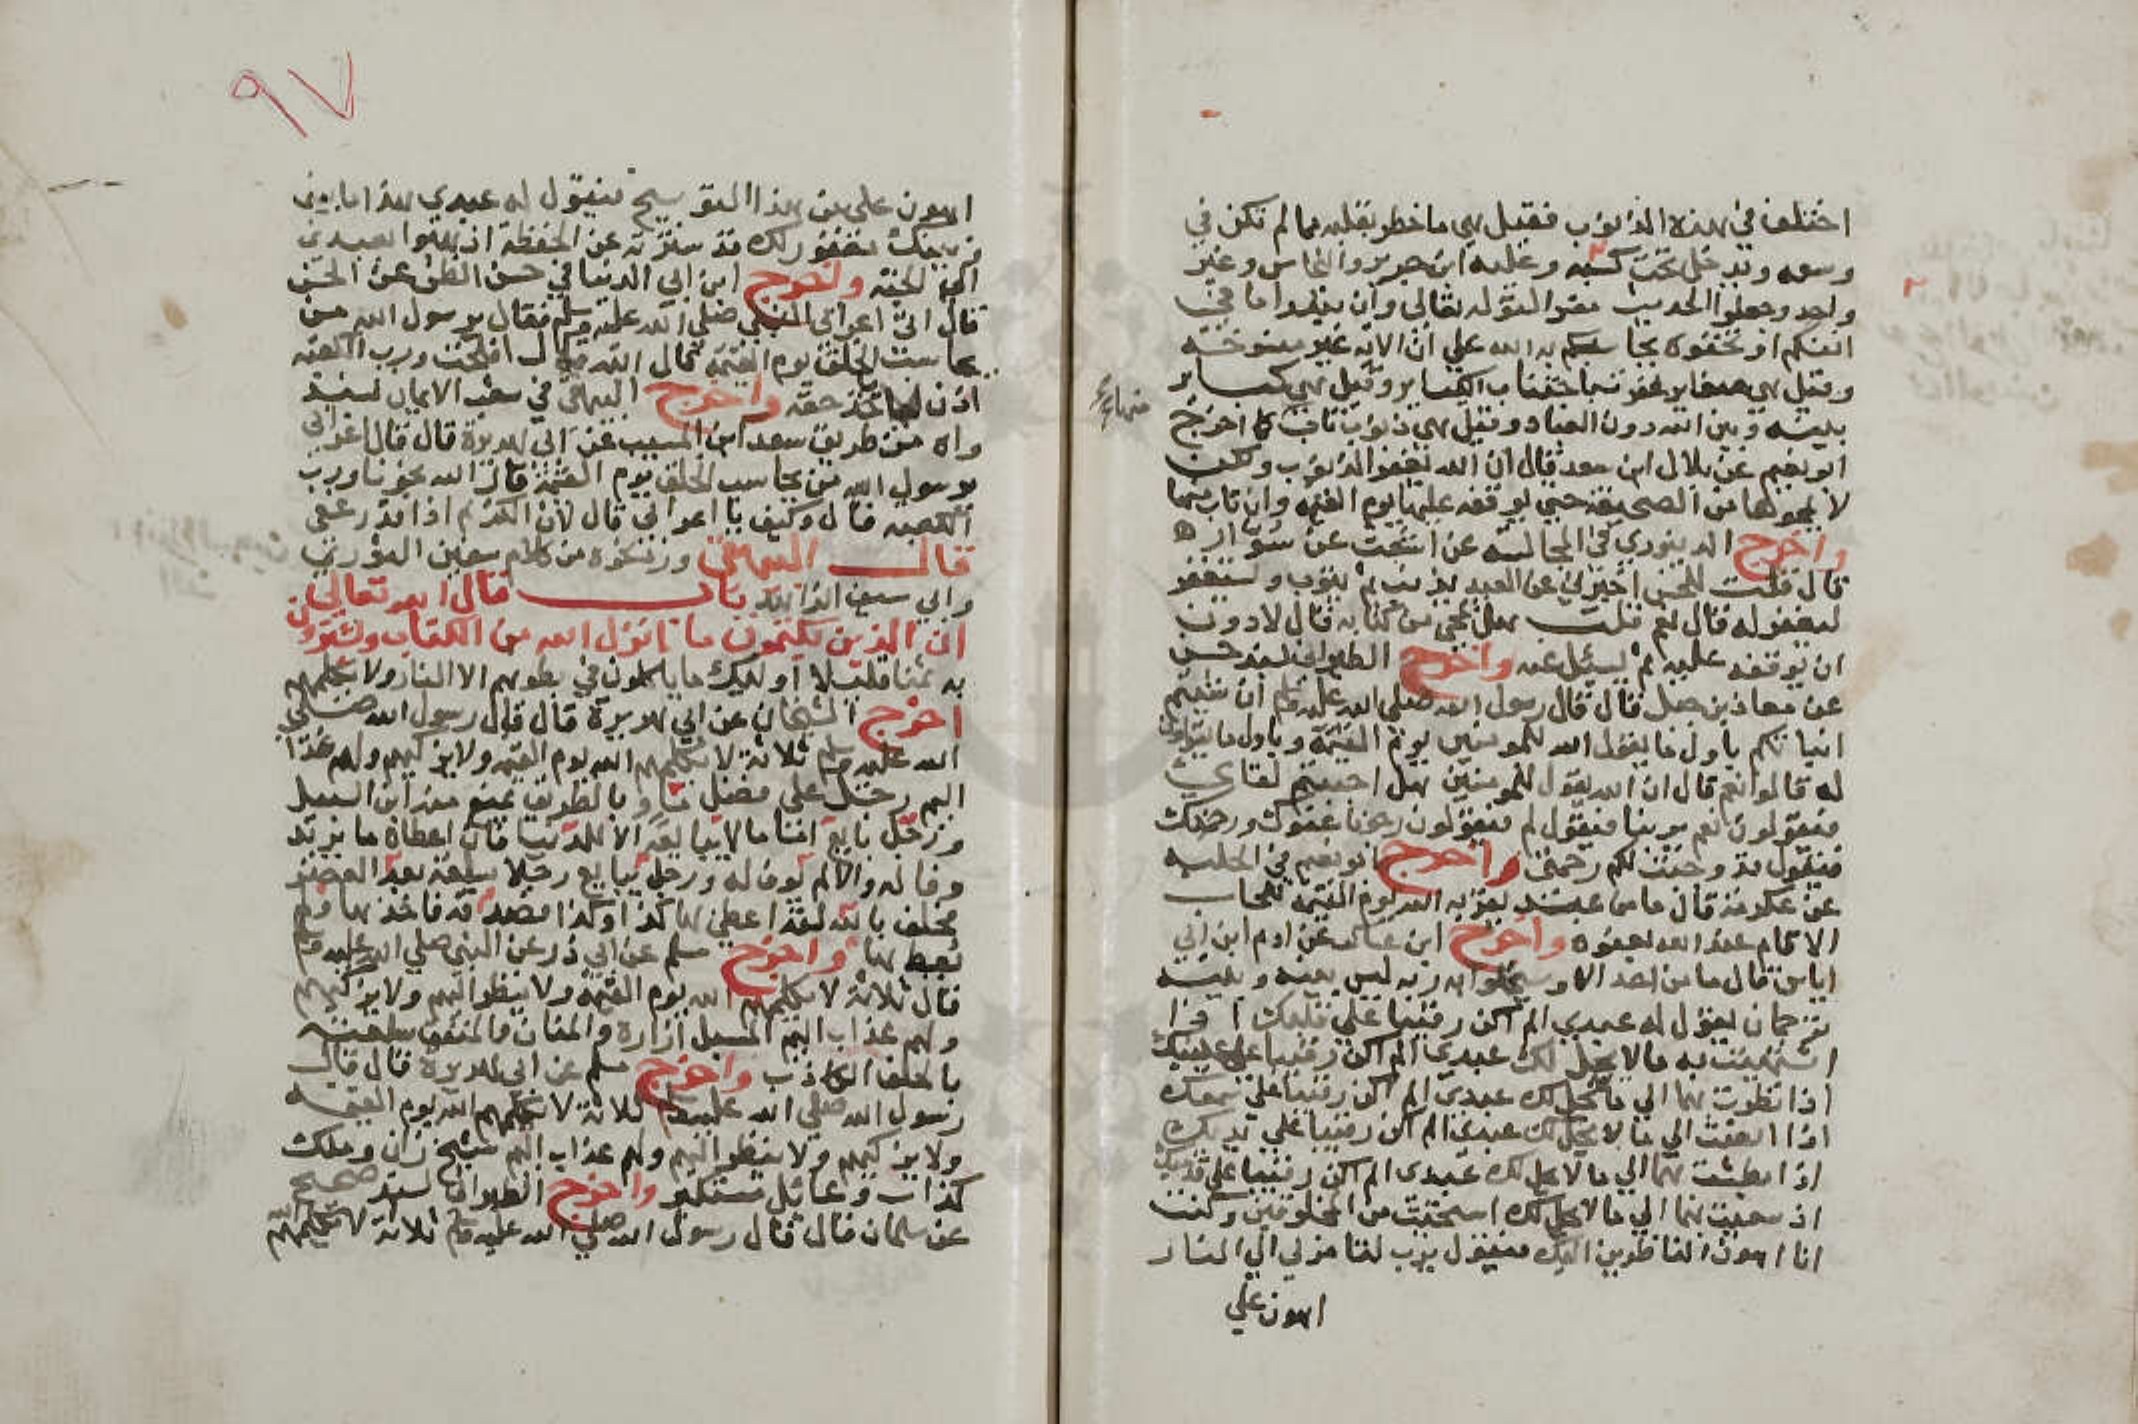 اختلف في هذه الذنوب فقيل هي ما خطر بقلبه مما لم تكن في
وسعه ويدخل تحت كسبه وعليه ابن جرير والنحاس وغير
واحد وجعلوا الحديث مفسرا لقوله تعالى وان تبدوا ما في
انفسكم او تخفوه يحاسبكم به الله على ان الاية غير منسوخة
وقيل هي صغاير غفرت باجتناب الكباير وقيل هي كباير
بينه وبين الله دون العباد وقيل هي ذنوب تاب كما اخرج
ابو نعيم عن بلال ابن سعد قال ان الله يغفر الذنوب ولكن
لا يمحوها من الصحيفة حتى يوقفه عليها يوم القيمة وان تاب منها
واخرج الدينوري في المجالسة عن
قال قلت للحسن اخبرني عن العبد يذنب ثم يتوب ويستغفر
ليغفر له قال نعم قلت هل يمحى من كتابه قال لا دون
ان يوقفه عليه ثم يسئل عنه واخرج الطبراني بسند حسن
عن معاذ بن جبل قال قال رسول الله صلى الله عليه وسلم ان شيتم
انباتكم باول ما يقول الله للمومنين يوم القيمة وباول ما يقولون
له قالوا نعم قال ان الله يقول للمومنين هل احببتم لقاي
فيقولون نعم يربنا فيقول لم فيقولون رجونا عفوك ورحمتك
فيقول قد وجبت لكم رحمتي واخرج ابو نعيم في الحلية
عن عكرمة قال ما من عبد يقربه الله يوم القيمة للحساب
الا قام عند الله بعفوه واخرج ابن عساكر عن ادم ابن ابي
اياس قال ما من احد الا وسيخلوا به ربه ليس بينه وبينه
ترجمان يقول له عبدي الم اكن رقيبا على قلبك اذا
اشتهيت به ما لا يحل لك عبدي الم اكن رقيبا على عينيك
اذا نظرت بهما الى ما لا يحل لك عبدي الم اكن رقيبا على سمعك
اذا انصت الى ما لا يحل لك عبدي الم اكن رقيبا على يديك
اذا بطشت بهما الى ما لا يحل لك عبدي الم اكن رقيبا على قدميك
اذ سعيت بهما الى ما لا يحل لك استحييت من المخلوقين وكنت
انا اهون الناظرين اليك فيقول يرب لنا مر لي الى النار
اهون علي
٩٧
اهون علي من هذا التوبيخ فيقول له عبدي هذا ما بيني
وبينك مغفور لك قد سترته عن الحفظة اذهبوا بعبدي
الى الجنة واخرج ابن ابي الدنيا في حسن الظن عن الحسن
قال اتى اعرابي النبي صلى الله عليه وسلم فقال يرسول الله من
يحاسب الخلق يوم القيمة قال الله قال افلحت ورب الكعبة
اذن لا ياخذ حقه واخرج البيهقي في شعب الايمان بسند
واه من طريق سعد ابن المسيب عن ابي هريرة قال قال اعرابي
يرسول الله من يحاسب الخلق يوم القيمة قال الله نجونا ورب
الكعبة قال وكيف يا اعرابي قال لان الكريم اذا قدر عفى
قال البيهقي ورينكوه من كلام سفين الثوري
وابي سليمان الداراني باب قال الله تعالى
ان الذين يكتمون ما انزل الله من الكتاب ويشترون
به ثمنا قليلا اوليك ما ياكلون في بطونهم الا النار ولا يكلمهم
اخرج الشيخان عن ابي هريرة قال قال رسول الله صلى
الله عليه وسلم ثلاثة لا يكلمهم الله يوم القيمة ولا يزكيهم ولهم عذاب
اليم رجل على فضل ماء بالطريق يمنع منه ابن السبيل
ورجل بايع اماما لا يبايعه الا للدنيا فان اعطاه ما يريد
وفا له والا لم يوف له ورجل يبايع رجلا بسلعة بعد العصر
فحلف بالله لقد اعطي بها كذا وكذا فصدقه فاخذها ولم
يعط بها واخرج مسلم عن ابي ذر عن النبي صلى الله عليه وسلم
قال ثلاثة لا يكلمهم الله يوم القيمة ولا ينظر اليهم ولا يزكيهم
ولهم عذاب اليم المسبل ازاره والمنان والمنفق سلعته
بالحلف الكاذب واخرج مسلم عن ابي هريرة قال قال
رسول الله صلى الله عليه وسلم ثلاثة لا يكلمهم الله يوم القيمة
ولا يزكيهم ولا ينظر اليهم ولهم عذاب اليم شيخ زان وملك
كذاب وعائل مستكبر واخرج الطبراني بسند صحيح
عن سلمان قال قال رسول الله صلى الله عليه وسلم ثلاثة لا يكلمهم الله